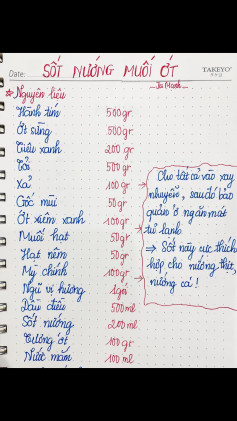 Date:
SỐT NƯỚNG MUỐI ỚT
TAKEYO
Nguyên liệu
Hành tím 500gr
Ớt sừng 500gr
Tiêu xanh 200gr
Tỏi 500gr
Xả 100gr
Gốc mùi 50gr
Ớt xiêm xanh 100gr
Muối hạt 50gr
Hạt nêm 50gr
Mỳ chính 100gr
Ngũ vị hương 1gói
Dầu điều 500ml
Sốt nướng 200ml
Tương ớt 100gr
Nước mắm 100ml
Cho tất cả vào xay
nhuyễn, sau đó bảo
quản ở ngăn mát
tủ lạnh
⇒ Sốt này cực thích
hợp cho nướng thịt,
nướng cá!